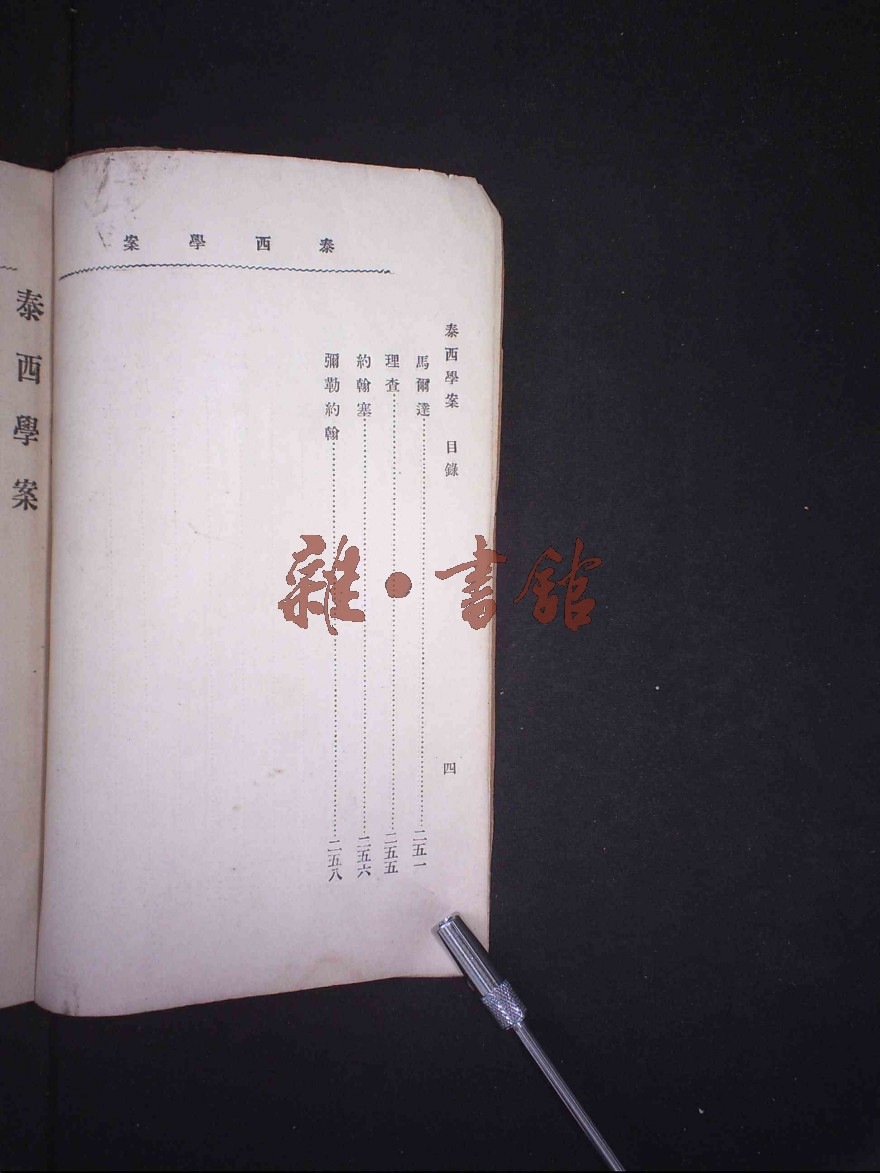 泰西學案
泰西學案 目錄 四
馬爾達……二五一
理查……二五五
約翰塞……二五六
彌勒約翰……二五八
泰西學案
雜·書館